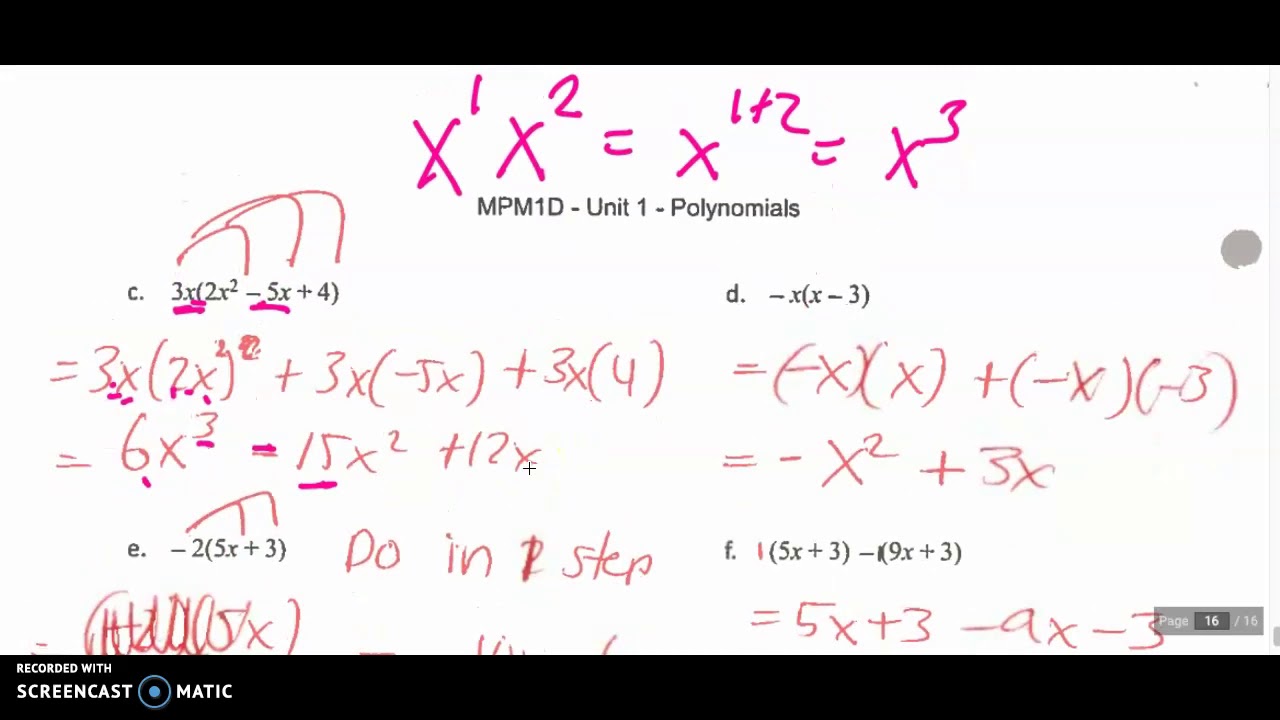 x¹ x² = x¹⁺² = x³
MPM1D - Unit 1 - Polynomials
c. 3x(2x² – 5x + 4)
= 3x(2x²) + 3x(-5x) + 3x(4)
= 6x³ - 15x² + 12x
d. – x(x – 3)
= (-x)(x) + (-x)(-3)
= - x² + 3x
e. – 2(5x + 3) Do in 1 step
(5x)
f. 1(5x + 3) – 1(9x + 3)
= 5x + 3 - 9x - 3
Page 16 / 16
RECORDED WITH
SCREENCAST MATIC